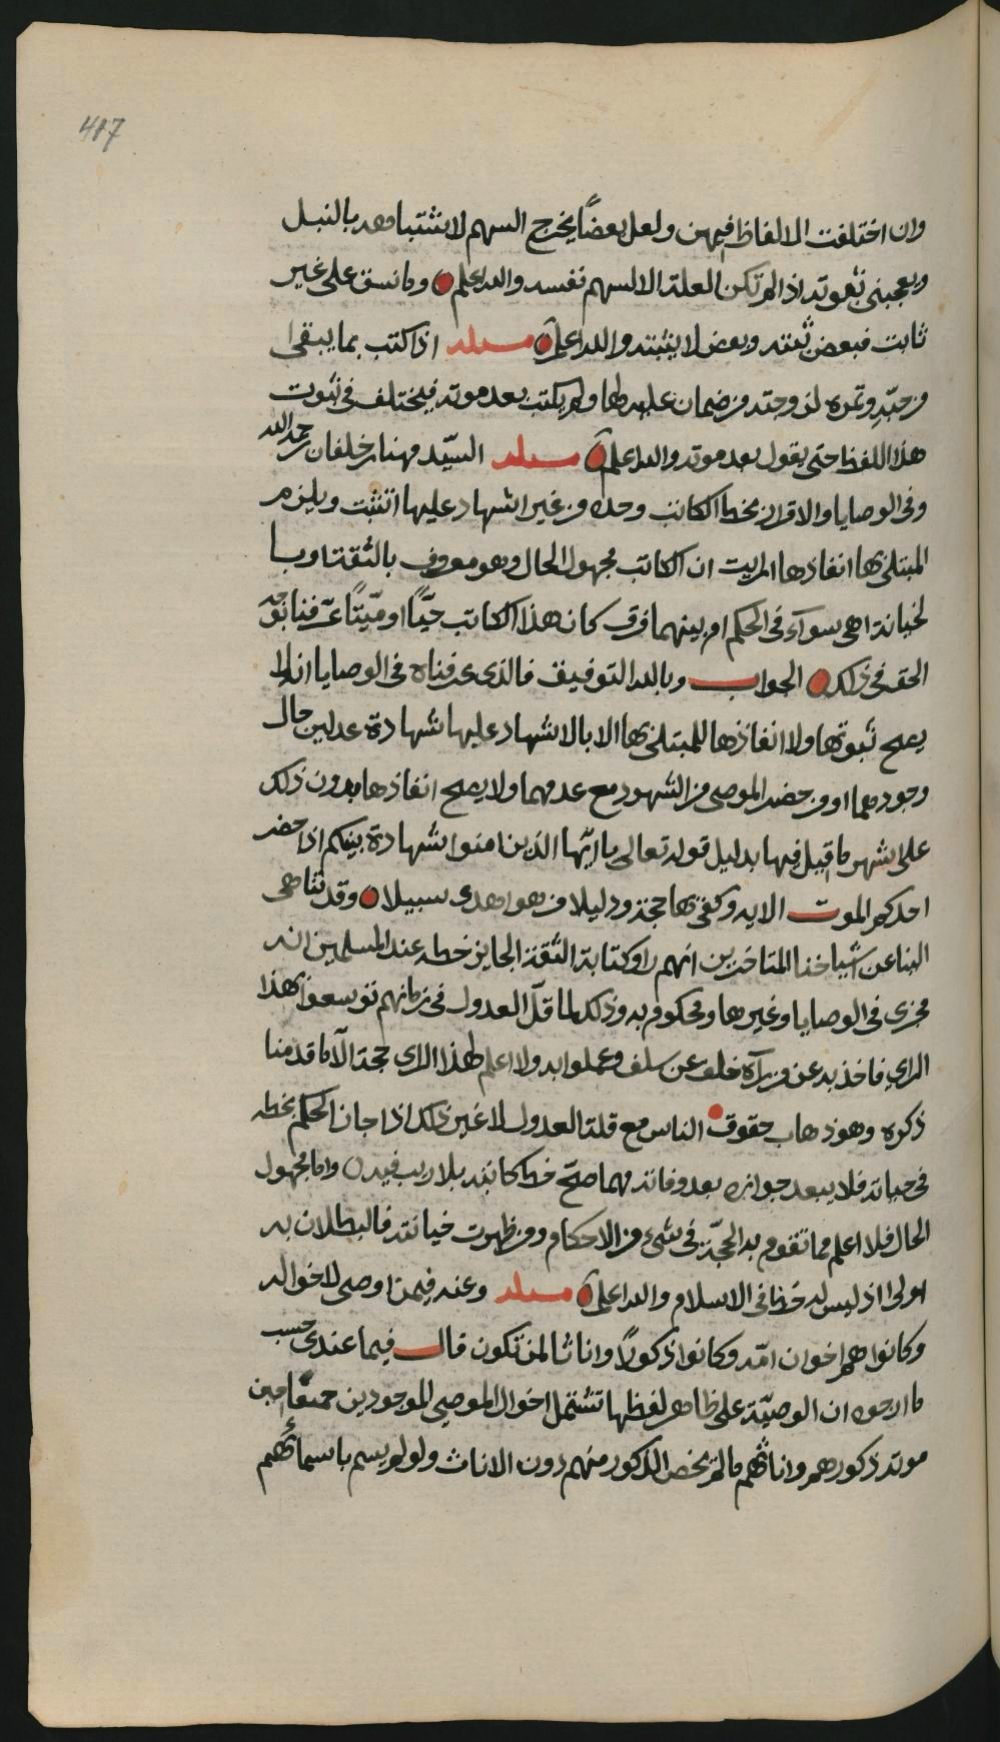 417
وان اختلفت الالفاظ فيهن ولعل بعضًا يخرج السهم لاشتباهه بالنبل
ويعجبني ثبوته اذا لم تكن العلة الا لسهم نفسه والله اعلم وما نسق على غير
ثابت فبعض ثبته وبعض لا يثبته والله اعلم مسئلة اذا كتب بما يبقى
من حبّه وتمره لزوجته من ضمان عليه لها ولم يكتب بعد موته فيختلف في ثبوت
هذا اللفظ حتى يقول بعد موته والله اعلم مسئلة السيّد مهنا بن خلفان رحمه الله
وفي الوصايا والاقرار بخط الكاتب وحده من غير اشهاد عليها اتثبت ويلزم
المبتلى بها انفاذها ارايت ان الكاتب مجهول الحال وهو معروف بالثقة او با
لخيانة اهي سوآء في الحكم ام بينهما فرق كان هذا الكاتب حيًّا او ميّتًا عرّفنا بوجه
الحق في ذلك الجواب وبالله التوفيق فالذي عرفناه في الوصايا انه لا
يصح ثبوتها ولا انفاذها للمبتلى بها الا بالاشهاد عليها شهادة عدلين حال
وجودهما او من حضر الموصي من الشهود مع عدمهما ولا يصح انفاذها بدون ذلك
على اشهر ما قيل فيها بدليل قوله تعالى يا ايّها الذين امنوا شهادة بينكم اذا حضر
احدكم الموت الايه وكفى بها حجة ودليلا من هو اهدى سبيلا وقد تناهى
الينا عن اشياخنا المتاخرين انهم راوا كتابة الثقة الجايز خطه عند المسلمين انه
مجزي في الوصايا وغيرها ومحكوم به وذلك لما قلّ العدول في زمانهم توسعوا بهذا
الراي فاخذ به عنهم من رآه خلف عن سلف وعملوا به ولا اعلم لهذا الراي حجة الّا ما قدمنا
ذكره وهو ذهاب حقوق الناس مع قلة العدول لا غير ذلك اذا جاز الحكم بخطه
في حياته فلا يبعد جوازه بعد وفاته مهما صحّ خط كاتبه بلا ريب فيه واما مجهول
الحال فلا اعلم مما تقوم به الحجّة في شيء من الاحكام ومن ظهرت خيانته فالبطلان به
اولى اذ ليس له حظ في الاسلام والله اعلم مسئلة وعنه فيمن اوصى لاخواله
وكانوا هم اخوان امّه وكانوا ذكورًا واناثا لمن تكون قال فيما عندي حسب
ما ارجوه ان الوصيّة على ظاهر لفظها تشتمل اخوال الموصي الموجودين جميعًا حين
موته ذكورهم واناثهم ما لم يخص الذكور منهم دون الاناث ولو لم يسم باسمائهم